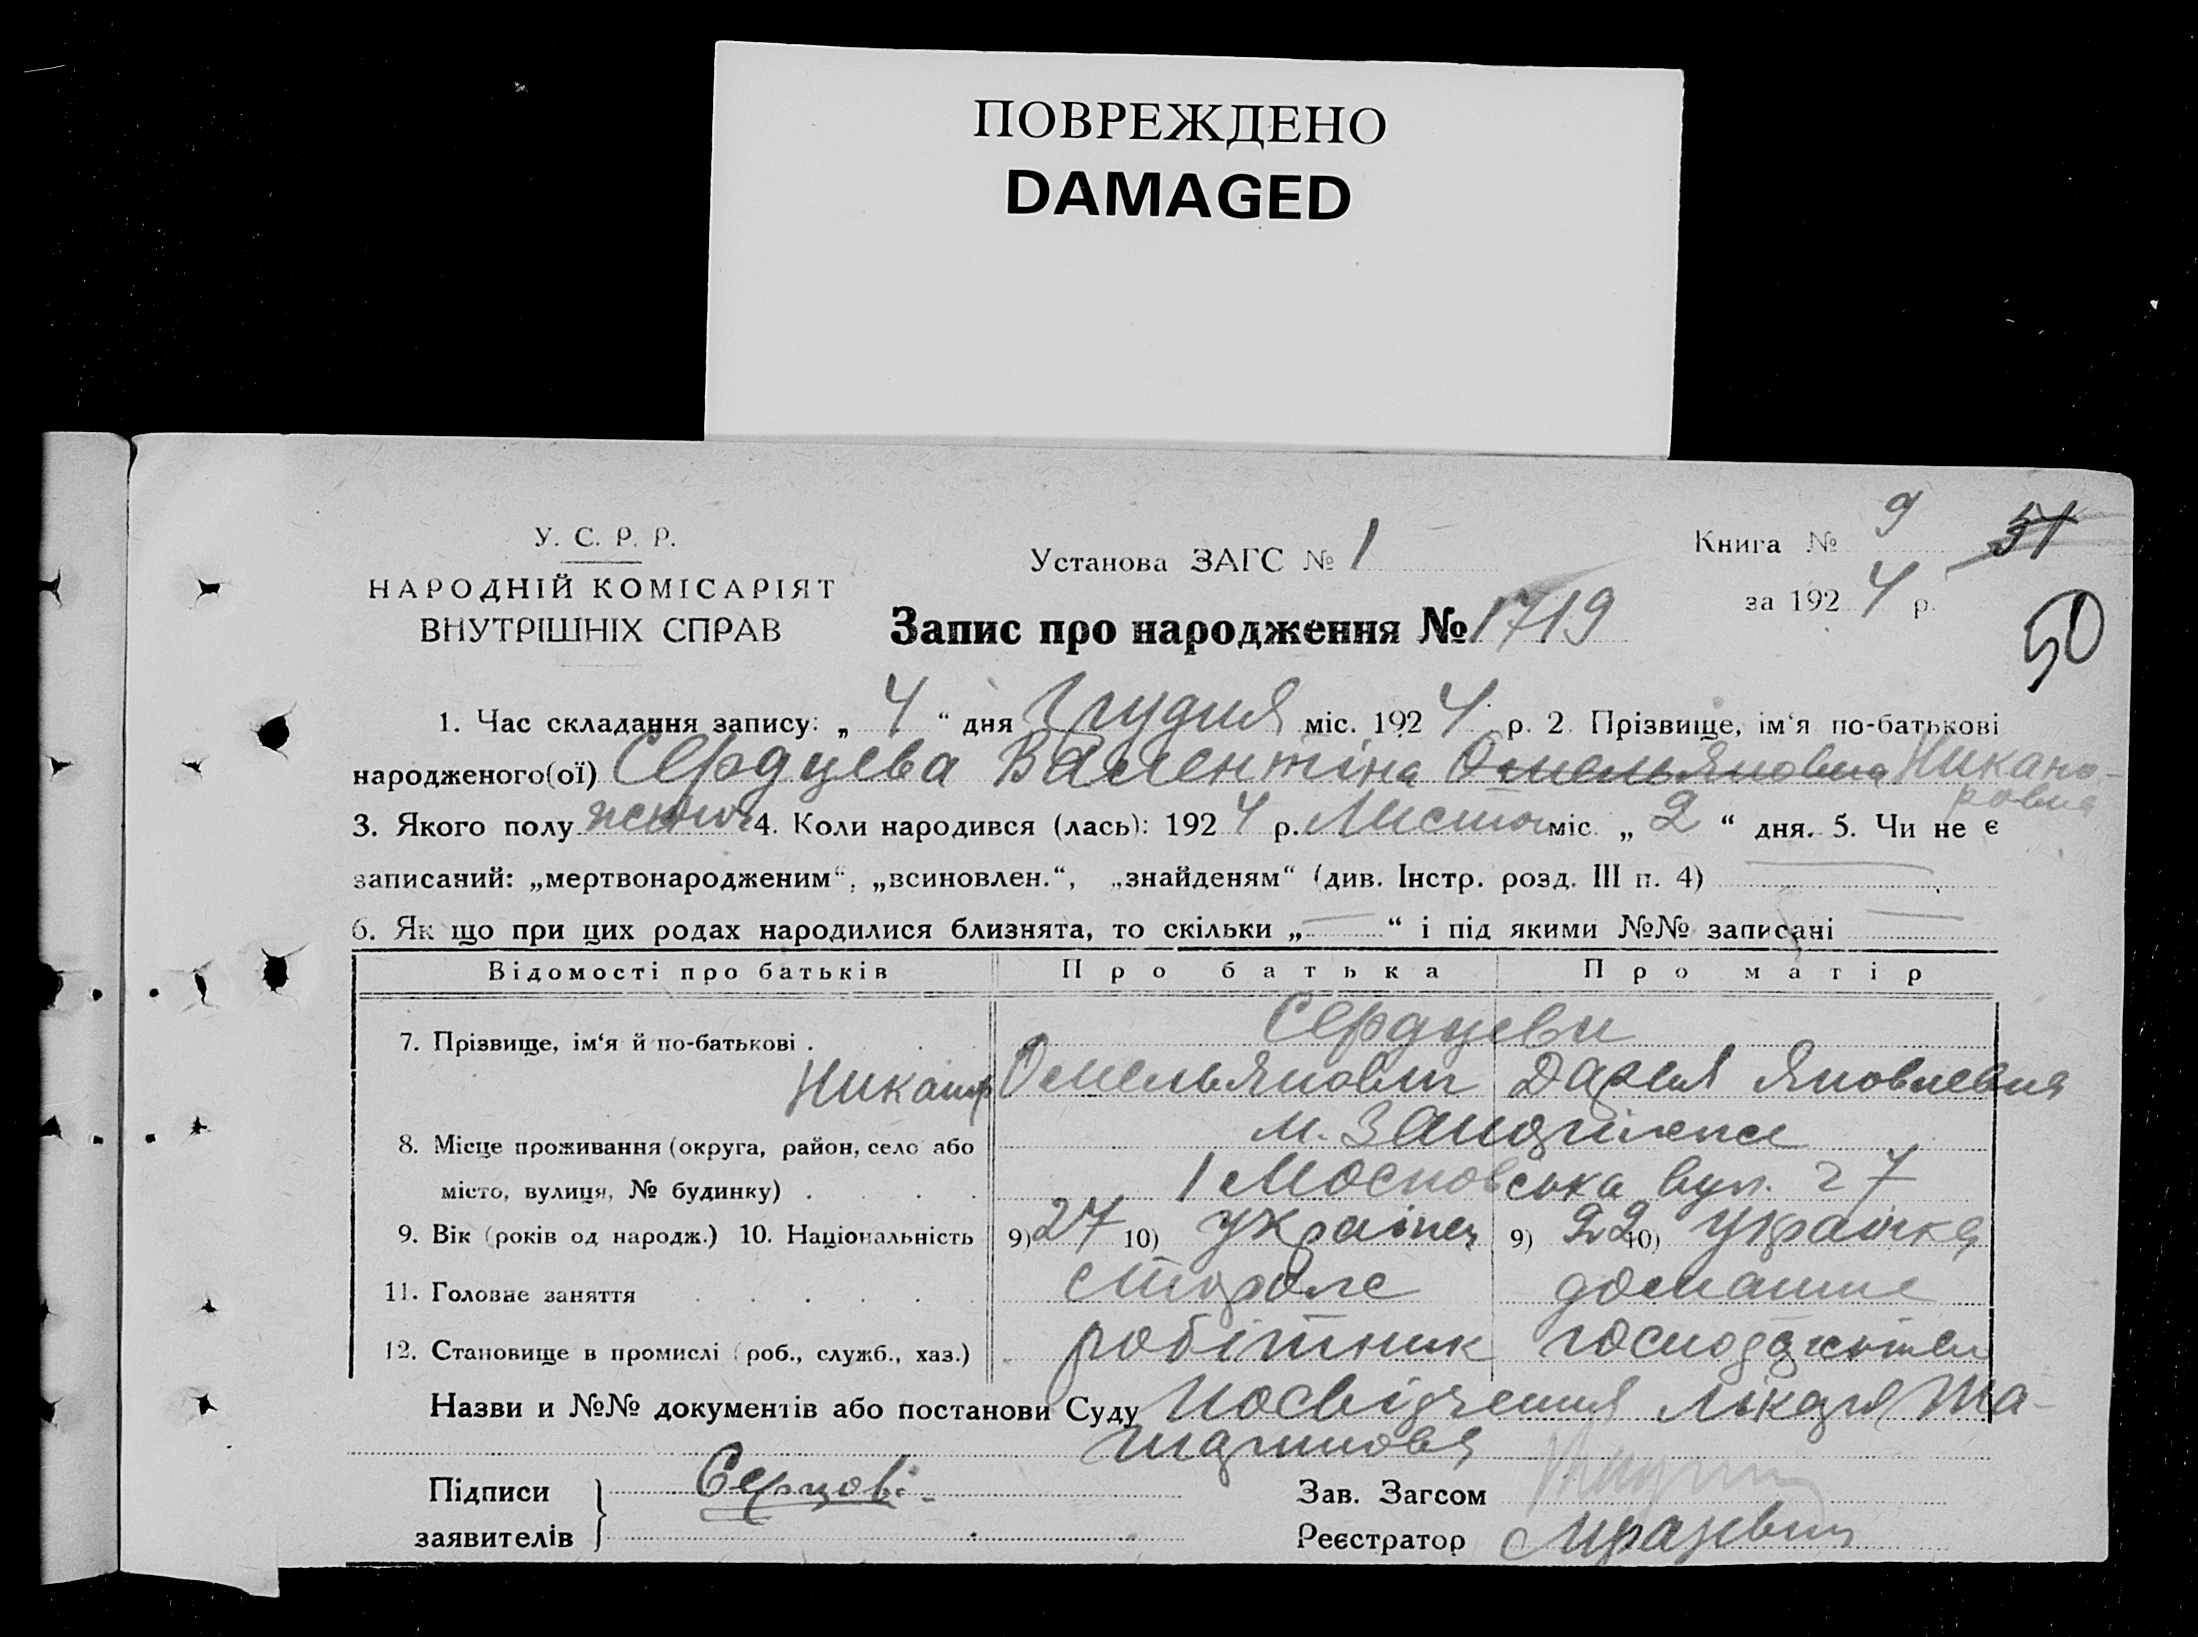 ПОВРЕЖДЕНО
DAMAGED
У. С. Р. Р.
НАРОДНІЙ КОМІСАРІЯТ
ВНУТРІШНІХ СПРАВ
Установа ЗАГС № 1
Запис про народження № 1719
Книга № 9
51
за 1924 р.
50
1. Час складання запису: „ 4 “ дня Грудня міс. 1924 р. 2. Прізвище, ім‘я по-батькові
народженого(ої) Сердцева Валентіна Омельяновна Никано-
ровна
3. Якого полу жіноч 4. Коли народився (лась): 1924 р. Листоп міс. „ 2 “ дня. 5. Чи не є
записаний: „мертвонародженим“, „всиновлен.“, „знайденям“ (див. Інстр. розд. III п. 4)
6. Як що при цих родах народилися близнята, то скільки „ — “ і під якими №№ записані —
Відомості про батьків Про батька Про матір
7. Прізвище, ім‘я й по-батькові . Сердцеви
Никанор Омельянович Дарья Яковлевна
8. Місце проживання (округа, район, село або м. Запоріжжа
місто, вулиця, № будинку) . . . . 1 Московська вул. 27
9. Вік (років од народж.) 10. Національність 9) 27 10) українец 9) 22 10) українка
11. Головне заняття . . . . . . сторож домашне
12. Становище в промислі (роб., служб., хаз.) робітник
Назви и №№ документів або постанови Суду Посвідчення лікаря
Підписи
заявителів
Зав. Загсом
Реєстратор